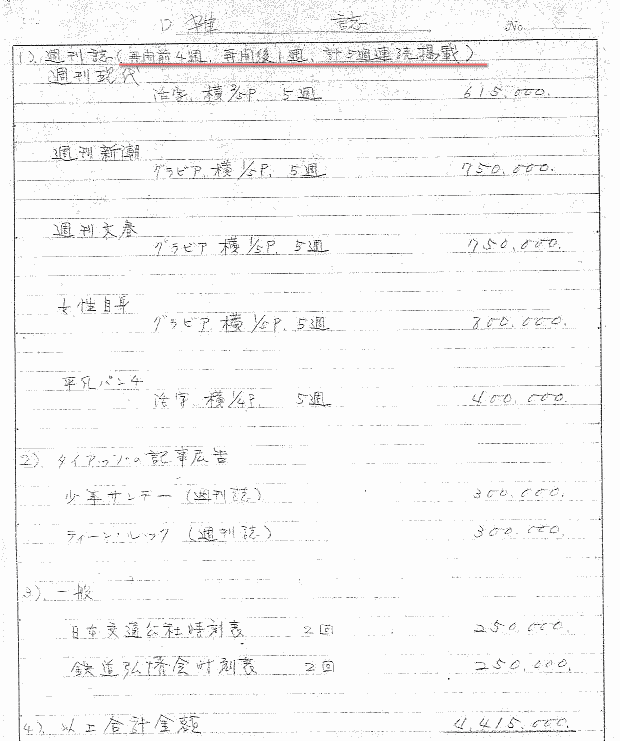 D 雑 誌 No.
1). 週刊誌(再開前4週、再開後1週、計5週連続掲載)
週刊現代
活字、横 5週 615,000.
週刊新潮
グラビア、横 1/5P、5週 750,000.
週刊文春
グラビア 横 1/5P、5週 750,000.
女性自身
グラビア、横 1/5P、5週 800,000.
平凡パンチ
活字 横 1/4P、 5週 400,000.
2). タイアップの記事広告
少年サンデー (週刊誌) 300,000.
ティーン・ルック (週刊誌) 300,000.
3). 一般
日本交通公社時刻表 2回 250,000.
鉄道弘済会時刻表 2回 250,000.
4). 以上合計金額 4,415,000.